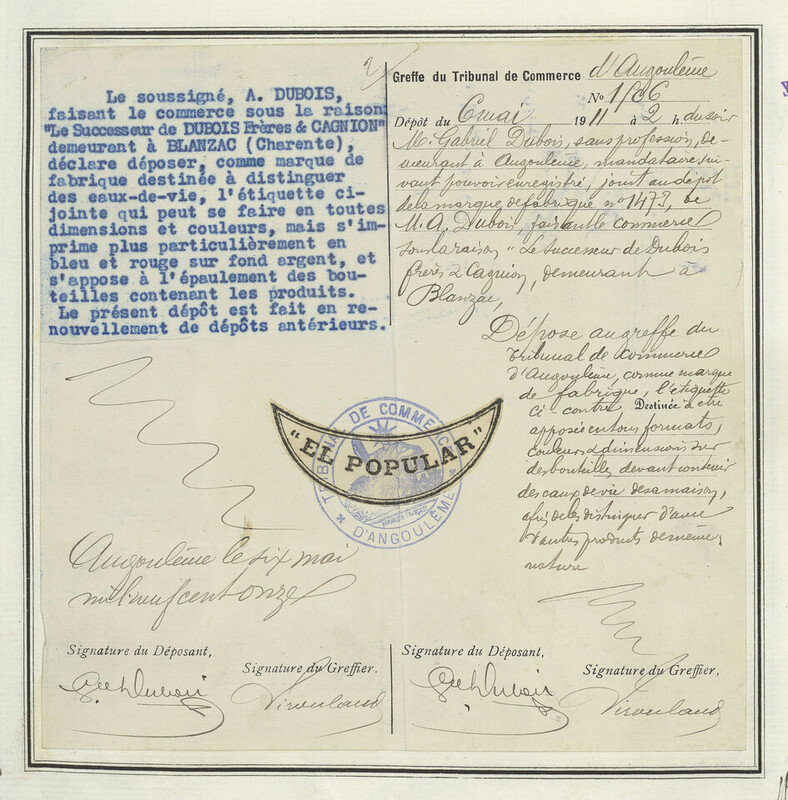 Le soussigné, A. DUBOIS,
faisant le commerce sous la raison
"Le Successeur de DUBOIS Frères & CAGNION"
demeurant à BLANZAC (Charente),
déclare déposer, comme marque de
fabrique destinée à distinguer
des eaux-de-vie, l'étiquette ci-
jointe qui peut se faire en toutes
dimensions et couleurs, mais s'im-
prime plus particulièrement en
bleu et rouge sur fond argent, et
s'appose à l'épaulement des bou-
teilles contenant les produits.
Le présent dépôt est fait en re-
nouvellement de dépôts antérieurs.
Angoulême le six mai
mil neuf cent onze
Signature du Déposant,
Signature du Greffier.
2
Greffe du Tribunal de Commerce d'Angoulême
No 1506
Dépôt du 6 mai 1911 à 2 h. du soir
M. Gabriel Dubois, sans profession, de-
meurant à Angoulême, mandataire sui-
vant pouvoir enregistré, joint au dépôt
de la marque de fabrique n° 1473, de
M. A. Dubois, faisant le commerce
sous la raison "Le Successeur de Dubois
frères & Cagnion, demeurant à
Blanzac,
Dépose au greffe du
Tribunal de Commerce
d'Angoulême, comme marque
de fabrique, l'étiquette
ci contre Destinée à être
apposée en tous formats,
couleurs & dimensions sur
des bouteilles devant contenir
des eaux de vie de sa maison,
afin de les distinguer d'avec
d'autres produits de même
nature
"EL POPULAR"
TRIBUNAL DE COMMERCE
D'ANGOULÊME
Signature du Déposant,
Signature du Greffier,